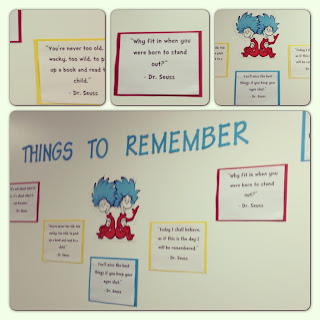 "You're never too old, too
wacky, too wild, to pick
up a book and read to a
child."
- Dr. Seuss
"Why fit in when you
were born to stand
out?"
- Dr. Seuss
"Today I
as if th
will be
You'll miss the best
things if you keep your
eyes shut."
- Dr. Seuss
THINGS TO REMEMBER
"You're never too old, too
wacky, too wild, to pick
up a book and read to a
child."
- Dr. Seuss
"You'll miss the best
things if you keep your
eyes shut."
- Dr. Seuss
"Today I shall behave,
as if this is the day I
will be remembered."
- Dr. Seuss
"Why fit in when you
were born to stand
out?"
- Dr. Seuss